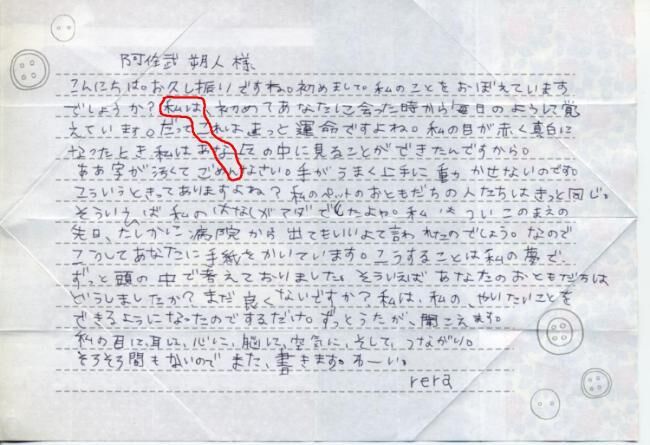 阿佐武 朔人 様
こんにちは。お久し振りですね。初めまして。私のことをおぼえています
でしょうか？私は、初めてあなたに会った時から毎日のようにして覚
えています。だってこれはきっと運命ですよね。私の目が赤く真白に
なったとき私はあなたの中に見ることができたんですから。
ああ字がうまくてごめんなさい。手がうまく上手に動かせないのです。
こういうときってありますよね？私のペットのおともだちの人たちはきっと同じ。
そういえば私のはなしがマダでしたよね。私はついこのまえの
先日、たしかに病院から出てもいいよて言われたのでしょう。なので
こうしてあなたに手紙をかいています。こうすることは私の夢で
ずっと頭の中で考えておりました。そういえばあなたのおともだちは
どうしましたか？まだ良くないですか？私は、私の、やりたいことを
できるようになったのでするだけ。ずっとうたが、聞こえます。
私の目に、耳に、心に、脳に、空気に、そして、うながり。
そろそろ間もないので また、書きます。わーい。
rera